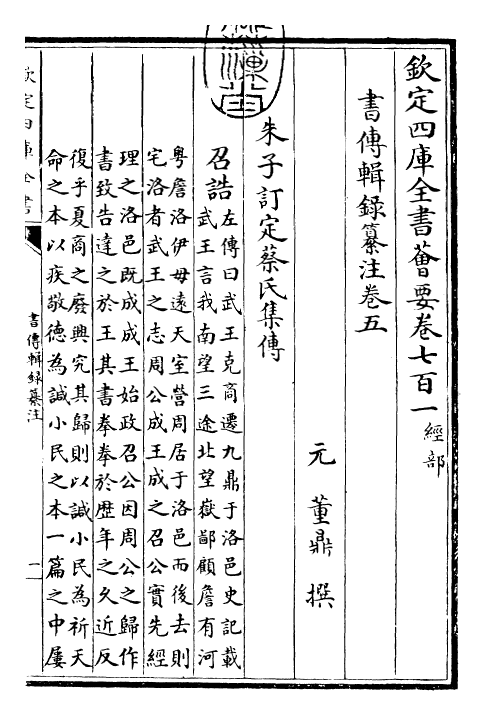 欽定四庫全書薈要卷七百一經部
書傳輯録纂注卷五
元董鼎撰
朱子訂定蔡氏集傳
召誥
左傳曰武王克商遷九鼎于洛邑史記載
武王言我南望三途北望嶽鄙顧詹有河
粤詹洛伊毋遠天室營周居于洛邑而後去則
宅洛者武王之志周公成王成之召公實先經
理之洛邑既成成王始政召公因周公之歸作
書致告達之於王其書拳拳於歴年之久近反
復乎夏商之廢興究其歸則以諴小民為祈天
命之本以疾敬德為諴小民之本一篇之中屢
欽定四庫全書
書傳輯録纂注
一